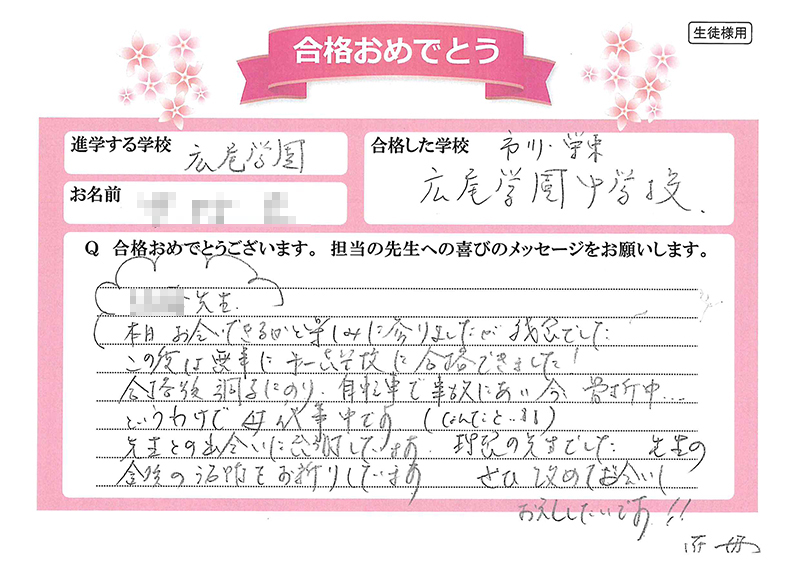 生徒様用
合格おめでとう
進学する学校 広尾学園
合格した学校 市川・栄東
広尾学園中学校.
お名前
Q 合格おめでとうございます。担当の先生への喜びのメッセージをお願いします。
先生
本日 お会いできるかと楽しみに参りましたが 残念でした
この度は無事に 第一志望校に合格できました!
合格後 調子にのり、自転車で事故にあい 今 骨折中...
というわけで 母代筆中です (なんてこと...)
先生との出会いに感謝しています 理想の先生でした 先生の
今後の活躍をお祈りしています ぜひ 改めてお会いし
お礼したいです!!